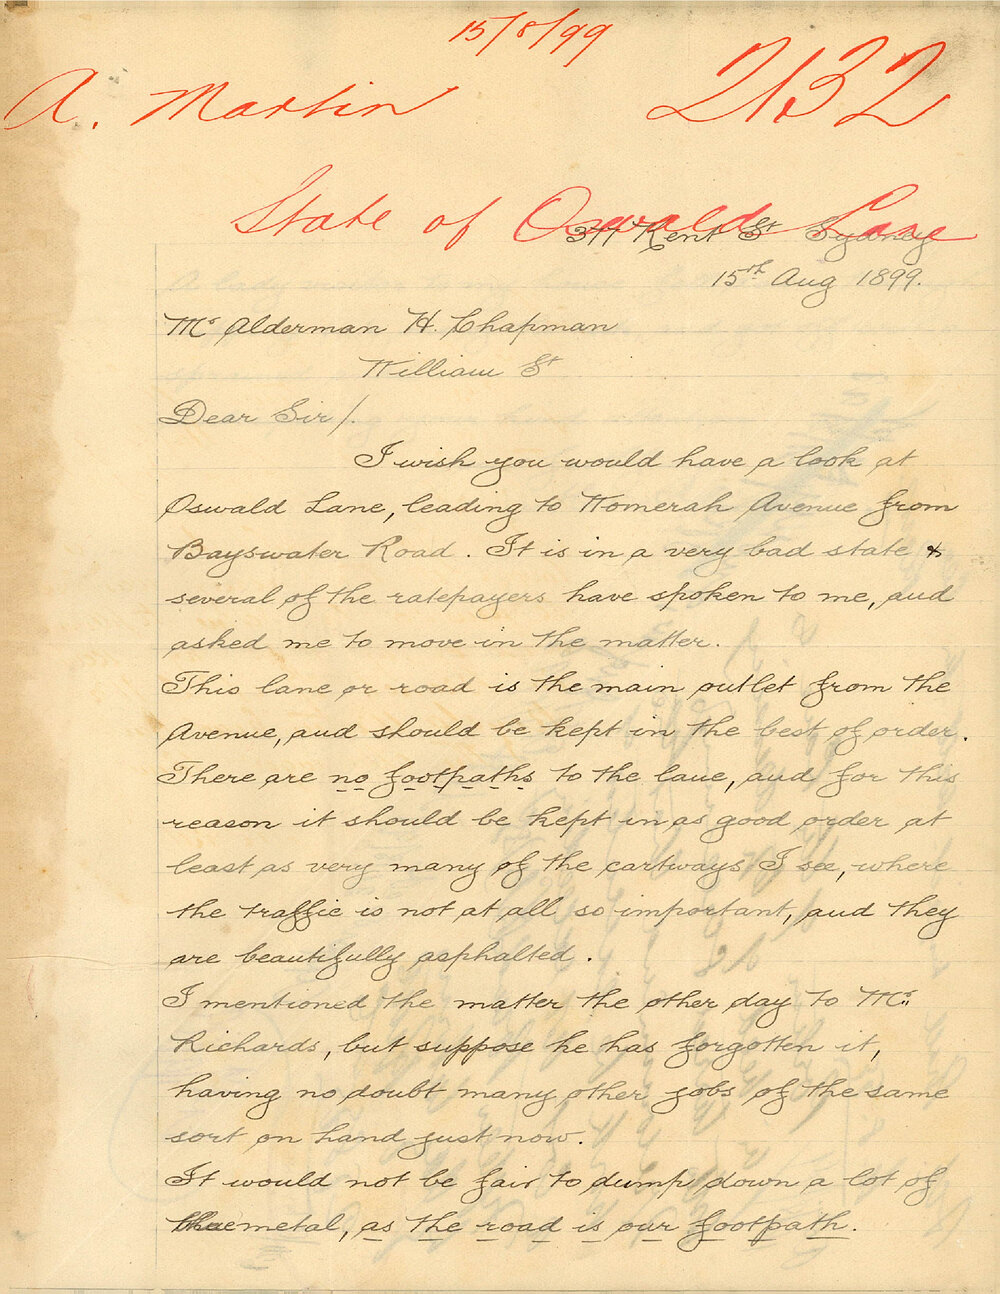 15/8/99
A. Martin 2132
State of Oswald Lane
377 Kent St Sydney
15th Aug 1899.
Mr Alderman H. Chapman
William St
Dear Sir/.
I wish you would have a look at
Oswald Lane, leading to Womerah Avenue from
Bayswater Road. It is in a very bad state &
several of the ratepayers have spoken to me, and
asked me to move in the matter.
This lane or road is the main outlet from the
Avenue, and should be kept in the best of order.
There are no footpaths to the lane, and for this
reason it should be kept in as good order at
least as very many of the cartways I see, where
the traffic is not at all so important, and they
are beautifully asphalted.
I mentioned the matter the other day to Mr.
Richards, but suppose he has forgotten it,
having no doubt many other jobs of the same
sort on hand just now.
It would not be fair to dump down a lot of
blue metal, as the road is our footpath.